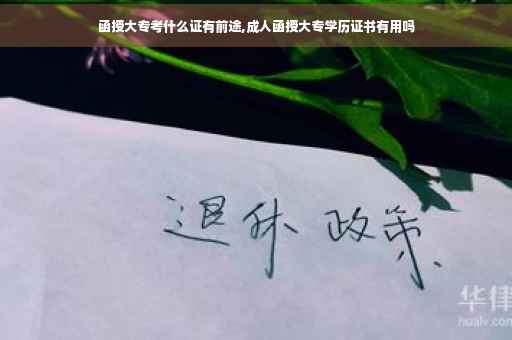 函授大专考什么证有前途,成人函授大专学历证书有用吗
退休 政策
华律
hualv.com